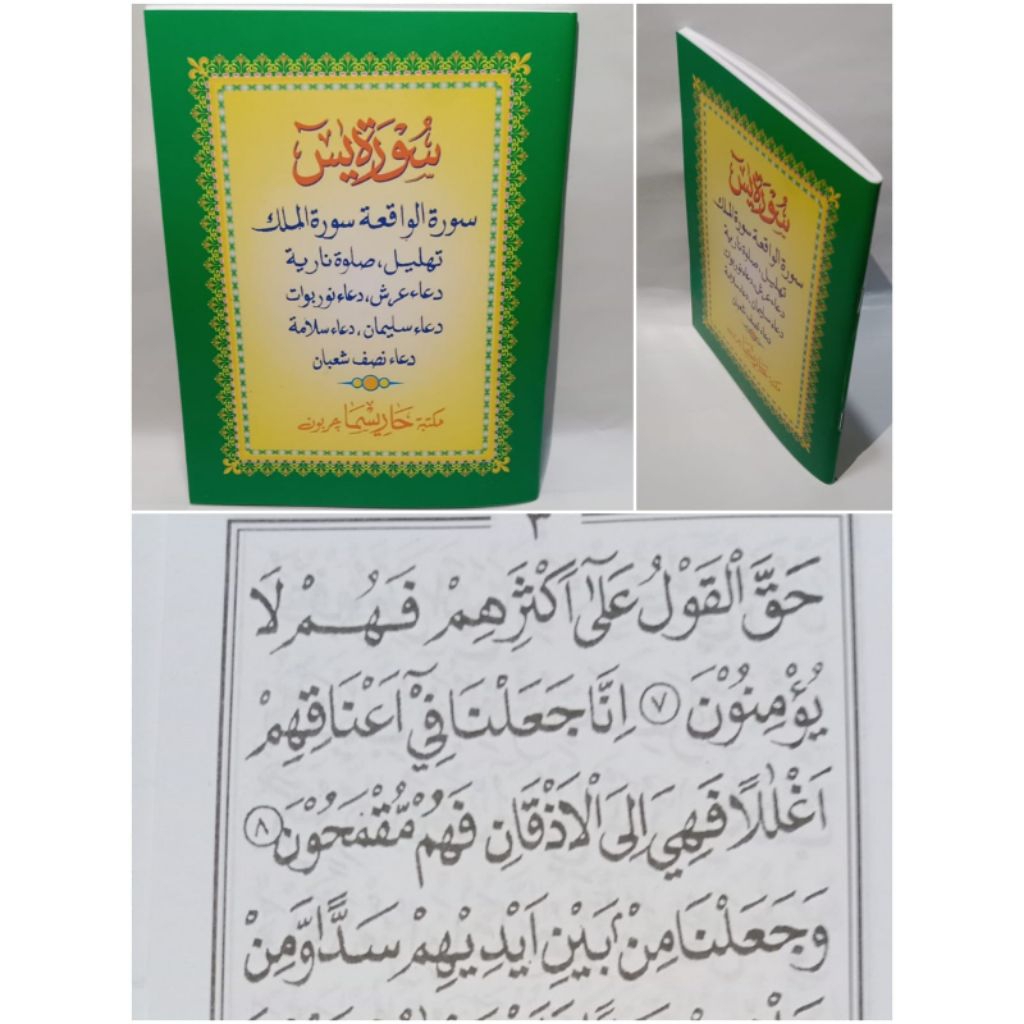 سُوْرَةُ يٰسٓ
سورة الواقعة سورة الملك
تهليل، صلوة نارية
دعاء عرش، دعاء نوربوات
دعاء سليمان، دعاء سلامة
دعاء نصف شعبان
مكتبة حاريسما چربون
سُوْرَةُ يٰسٓ
سورة الواقعة سورة الملك
تهليل، صلوة نارية
دعاء عرش، دعاء نوربوات
دعاء سليمان، دعاء سلامة
دعاء نصف شعبان
٣
حَقَّ الْقَوْلُ عَلٰٓى اَكْثَرِهِمْ فَهُمْ لَا
يُؤْمِنُوْنَ ٧ اِنَّا جَعَلْنَا فِيْٓ اَعْنَاقِهِمْ
اَغْلٰلًا فَهِيَ اِلَى الْاَذْقَانِ فَهُمْ مُّقْمَحُوْنَ ٨
وَجَعَلْنَا مِنْۢ بَيْنِ اَيْدِيْهِمْ سَدًّا وَّمِنْ